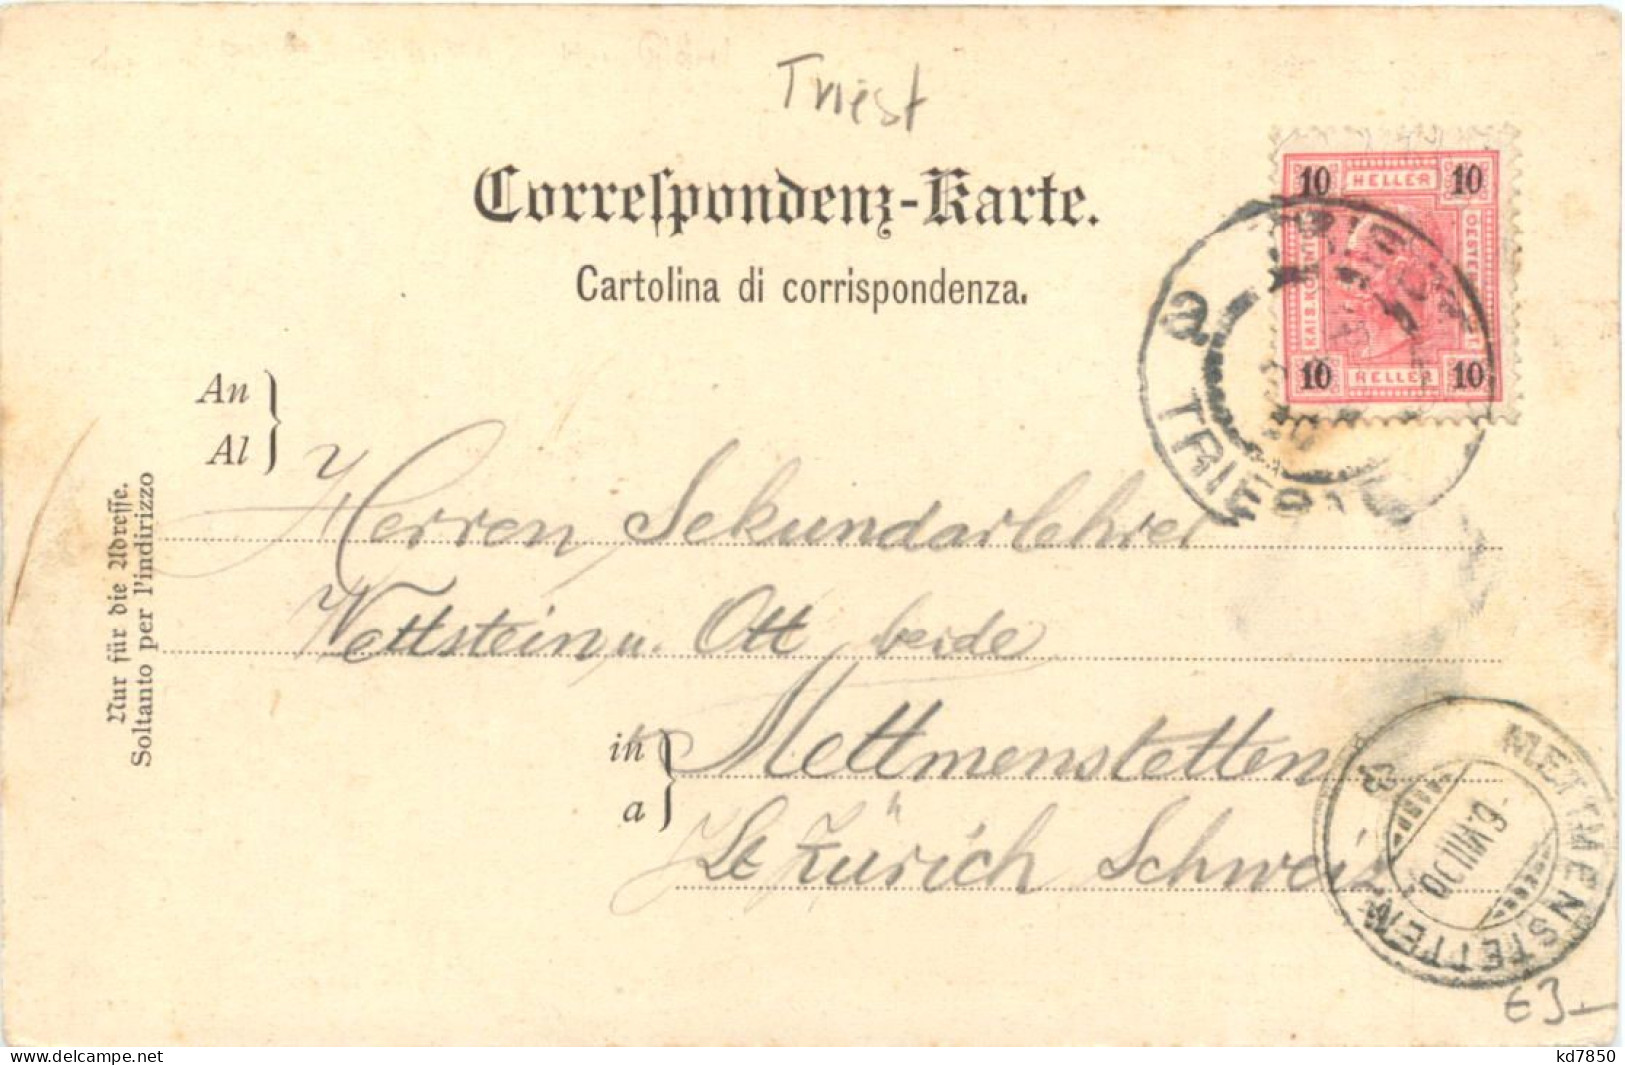 Triest
Correspondenz-Karte.
Cartolina di corrispondenza.
10 HELLER 10
10 HELLER 10
TRIEST
An
Al
Herren Sekundarlehrer
Wettstein u. Ott beide
in
a
Mettmenstetten
Kt Zürich Schweiz
Nur für die Adresse.
Soltanto per l'indirizzo
METTMENSTETTEN
6.VIII.00
€3-
www.delcampe.net
kd7850